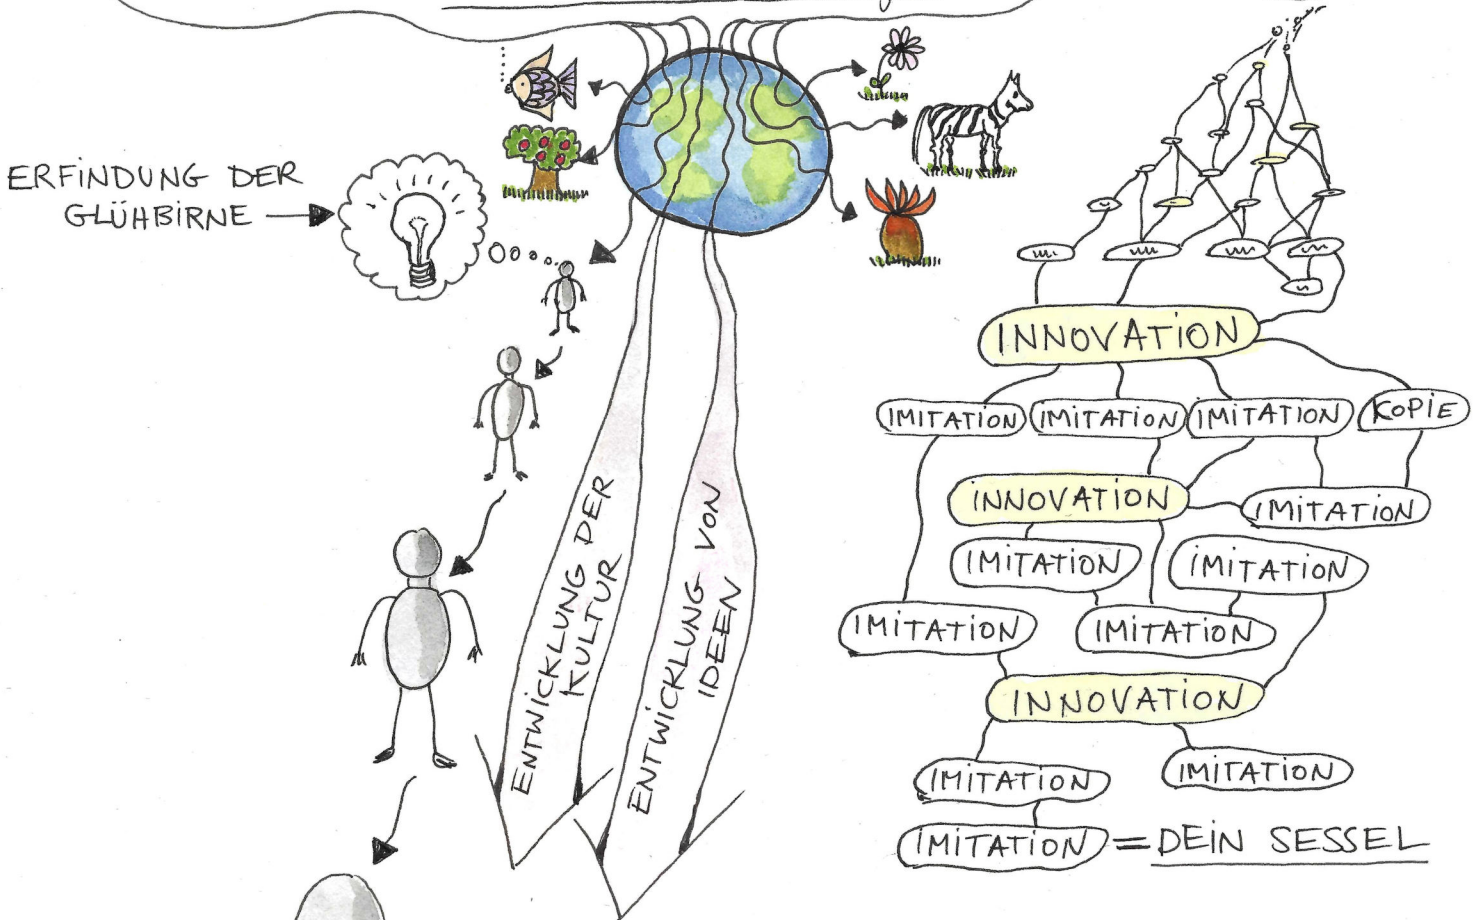 ERFINDUNG DER
GLÜHBIRNE
ENTWICKLUNG DER
KULTUR
ENTWICKLUNG VON
IDEEN
INNOVATION
IMITATION
IMITATION
IMITATION
KOPIE
INNOVATION
IMITATION
IMITATION
IMITATION
IMITATION
IMITATION
INNOVATION
IMITATION
IMITATION
IMITATION = DEIN SESSEL